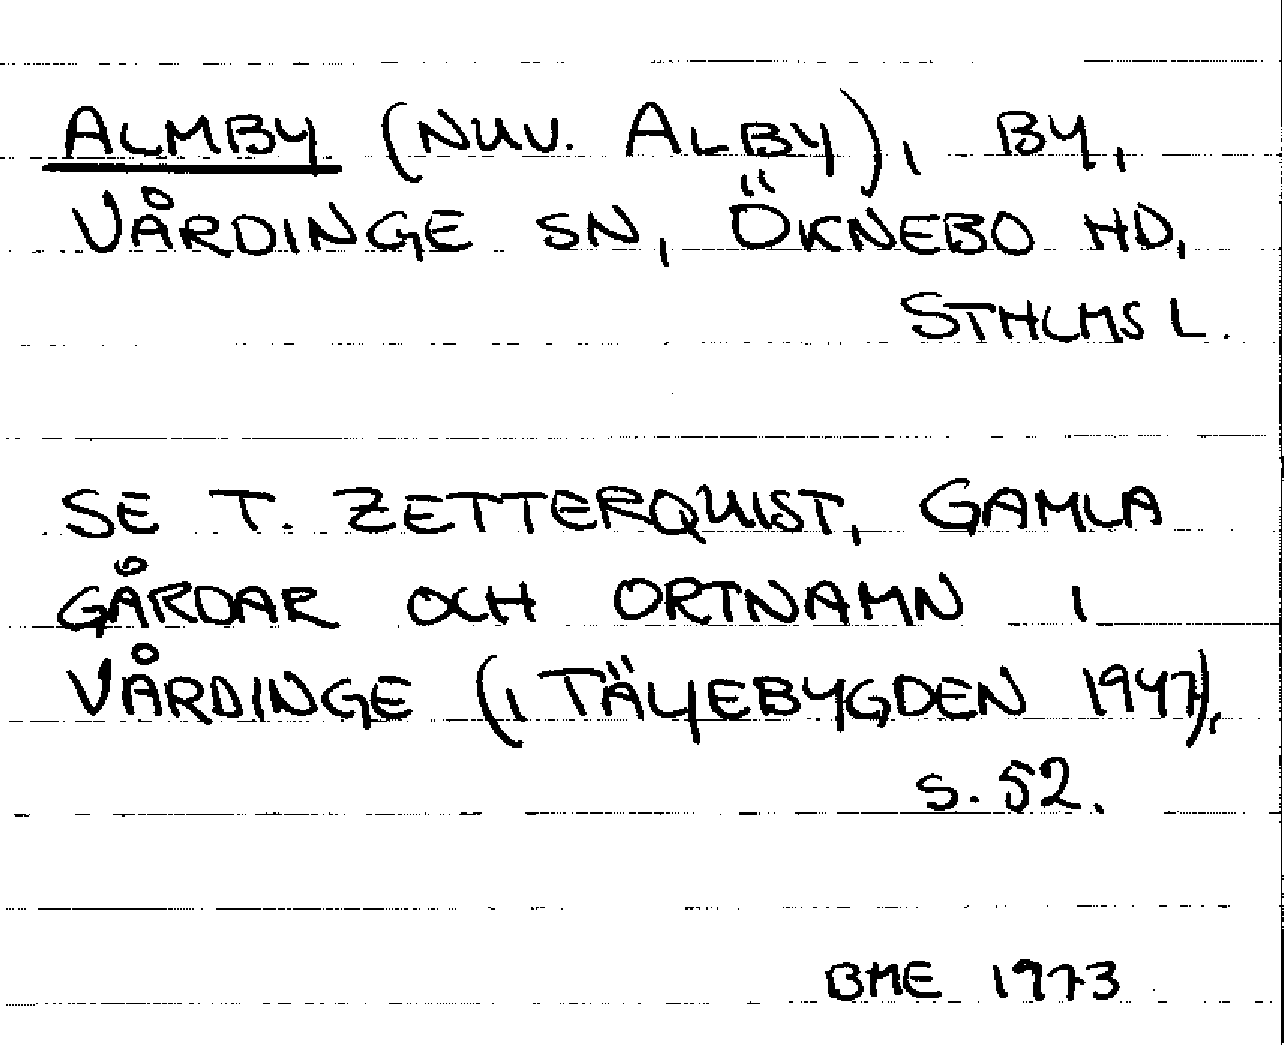 ALMBY (NUV. ALBY), BY,
VÅRDINGE SN, ÖKNEBO HD,
STHLMS L.
SE T. ZETTERQUIST, GAMLA
GÅRDAR OCH ORTNAMN I
VÅRDINGE (I TÄLJEBYGDEN 1947),
S. 52.
BME 1973